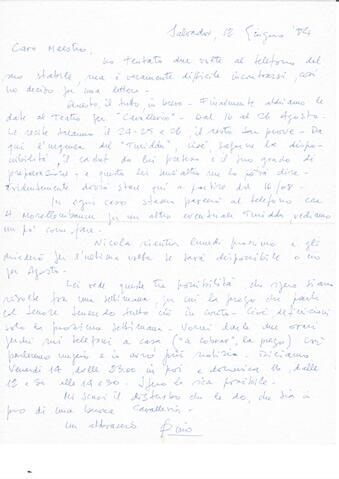 Salvador, 12 Giugno '84
Caro Maestro,
ho tentato due volte al telefono del
suo stabile, ma è veramente difficile incontrarsi, così
ho deciso per una lettera.
Questo, il tutto, in breve. Finalmente abbiamo le
date al Teatro per "Cavalleria". Dal 16 al 26 Agosto.
Le recite saranno il 24-25 e 26, il resto son prove. Da
qui l'urgenza del "Turiddu". Cioè, sapere la dispo-
nibilità, il cachet da lui preteso e il suo grado di
preparazione. e questo lei senz'altro me lo potrà dire.
evidentemente dovrà stare qui a partire dal 16/08.
In ogni caso stasera parlerò al telefono con
per un altro eventuale Turiddu, vediamo
un po' come fare.
Nicola rientra lunedì prossimo e gli
chiederò per l'ultima volta se sarà disponibile o no
per Agosto.
Lei vede queste tre possibilità, che spero siano
risolte fra una settimana, per cui la prego che parli
col tenore tenendo tutto ciò in conto. Cioè definizioni
solo la prossima settimana. Vorrei darle due orari
perché mi telefoni a casa ("a cobrar", la prego) così
parleremo meglio e io avrò più notizie. Diciamo
Venerdì 14, dalle 23:00 in poi e domenica 16, dalle
12 e 30 alle 14 e 30. Spero le sia possibile.
Mi scusi il disturbo che le do, che sia in
pro di una buona Cavalleria.
Un abbraccio